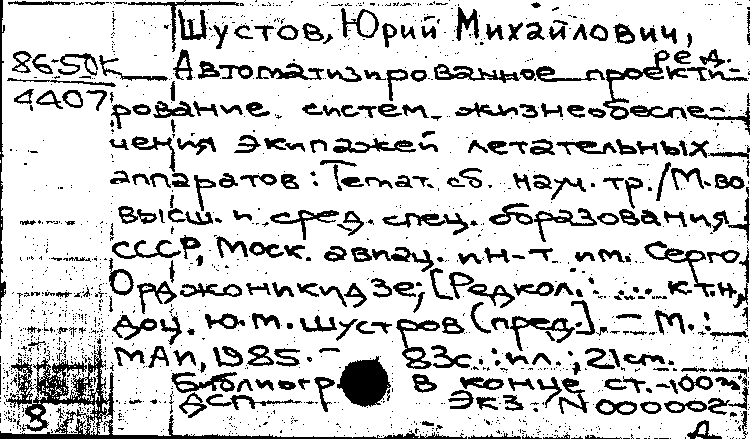 Шустов, Юрий Михайлович,
ред.
86-50к
Автоматизированное проекти-
4407
рование систем жизнеобеспе-
чения экипажей летательных
аппаратов: Темат. сб. науч. тр./М-во
высш. и сред. спец. образования
СССР, Моск. авиац. ин-т им. Серго
Орджоникидзе; [Редкол.: ... к.т.н,
доц. Ю.М. Шустров (пред.]. - М.:
МАИ, 1985. - 83с.: ил.; 21см.
Библиогр. в конце ст. - 100
ДСП. Экз. N 000002.
8
Д